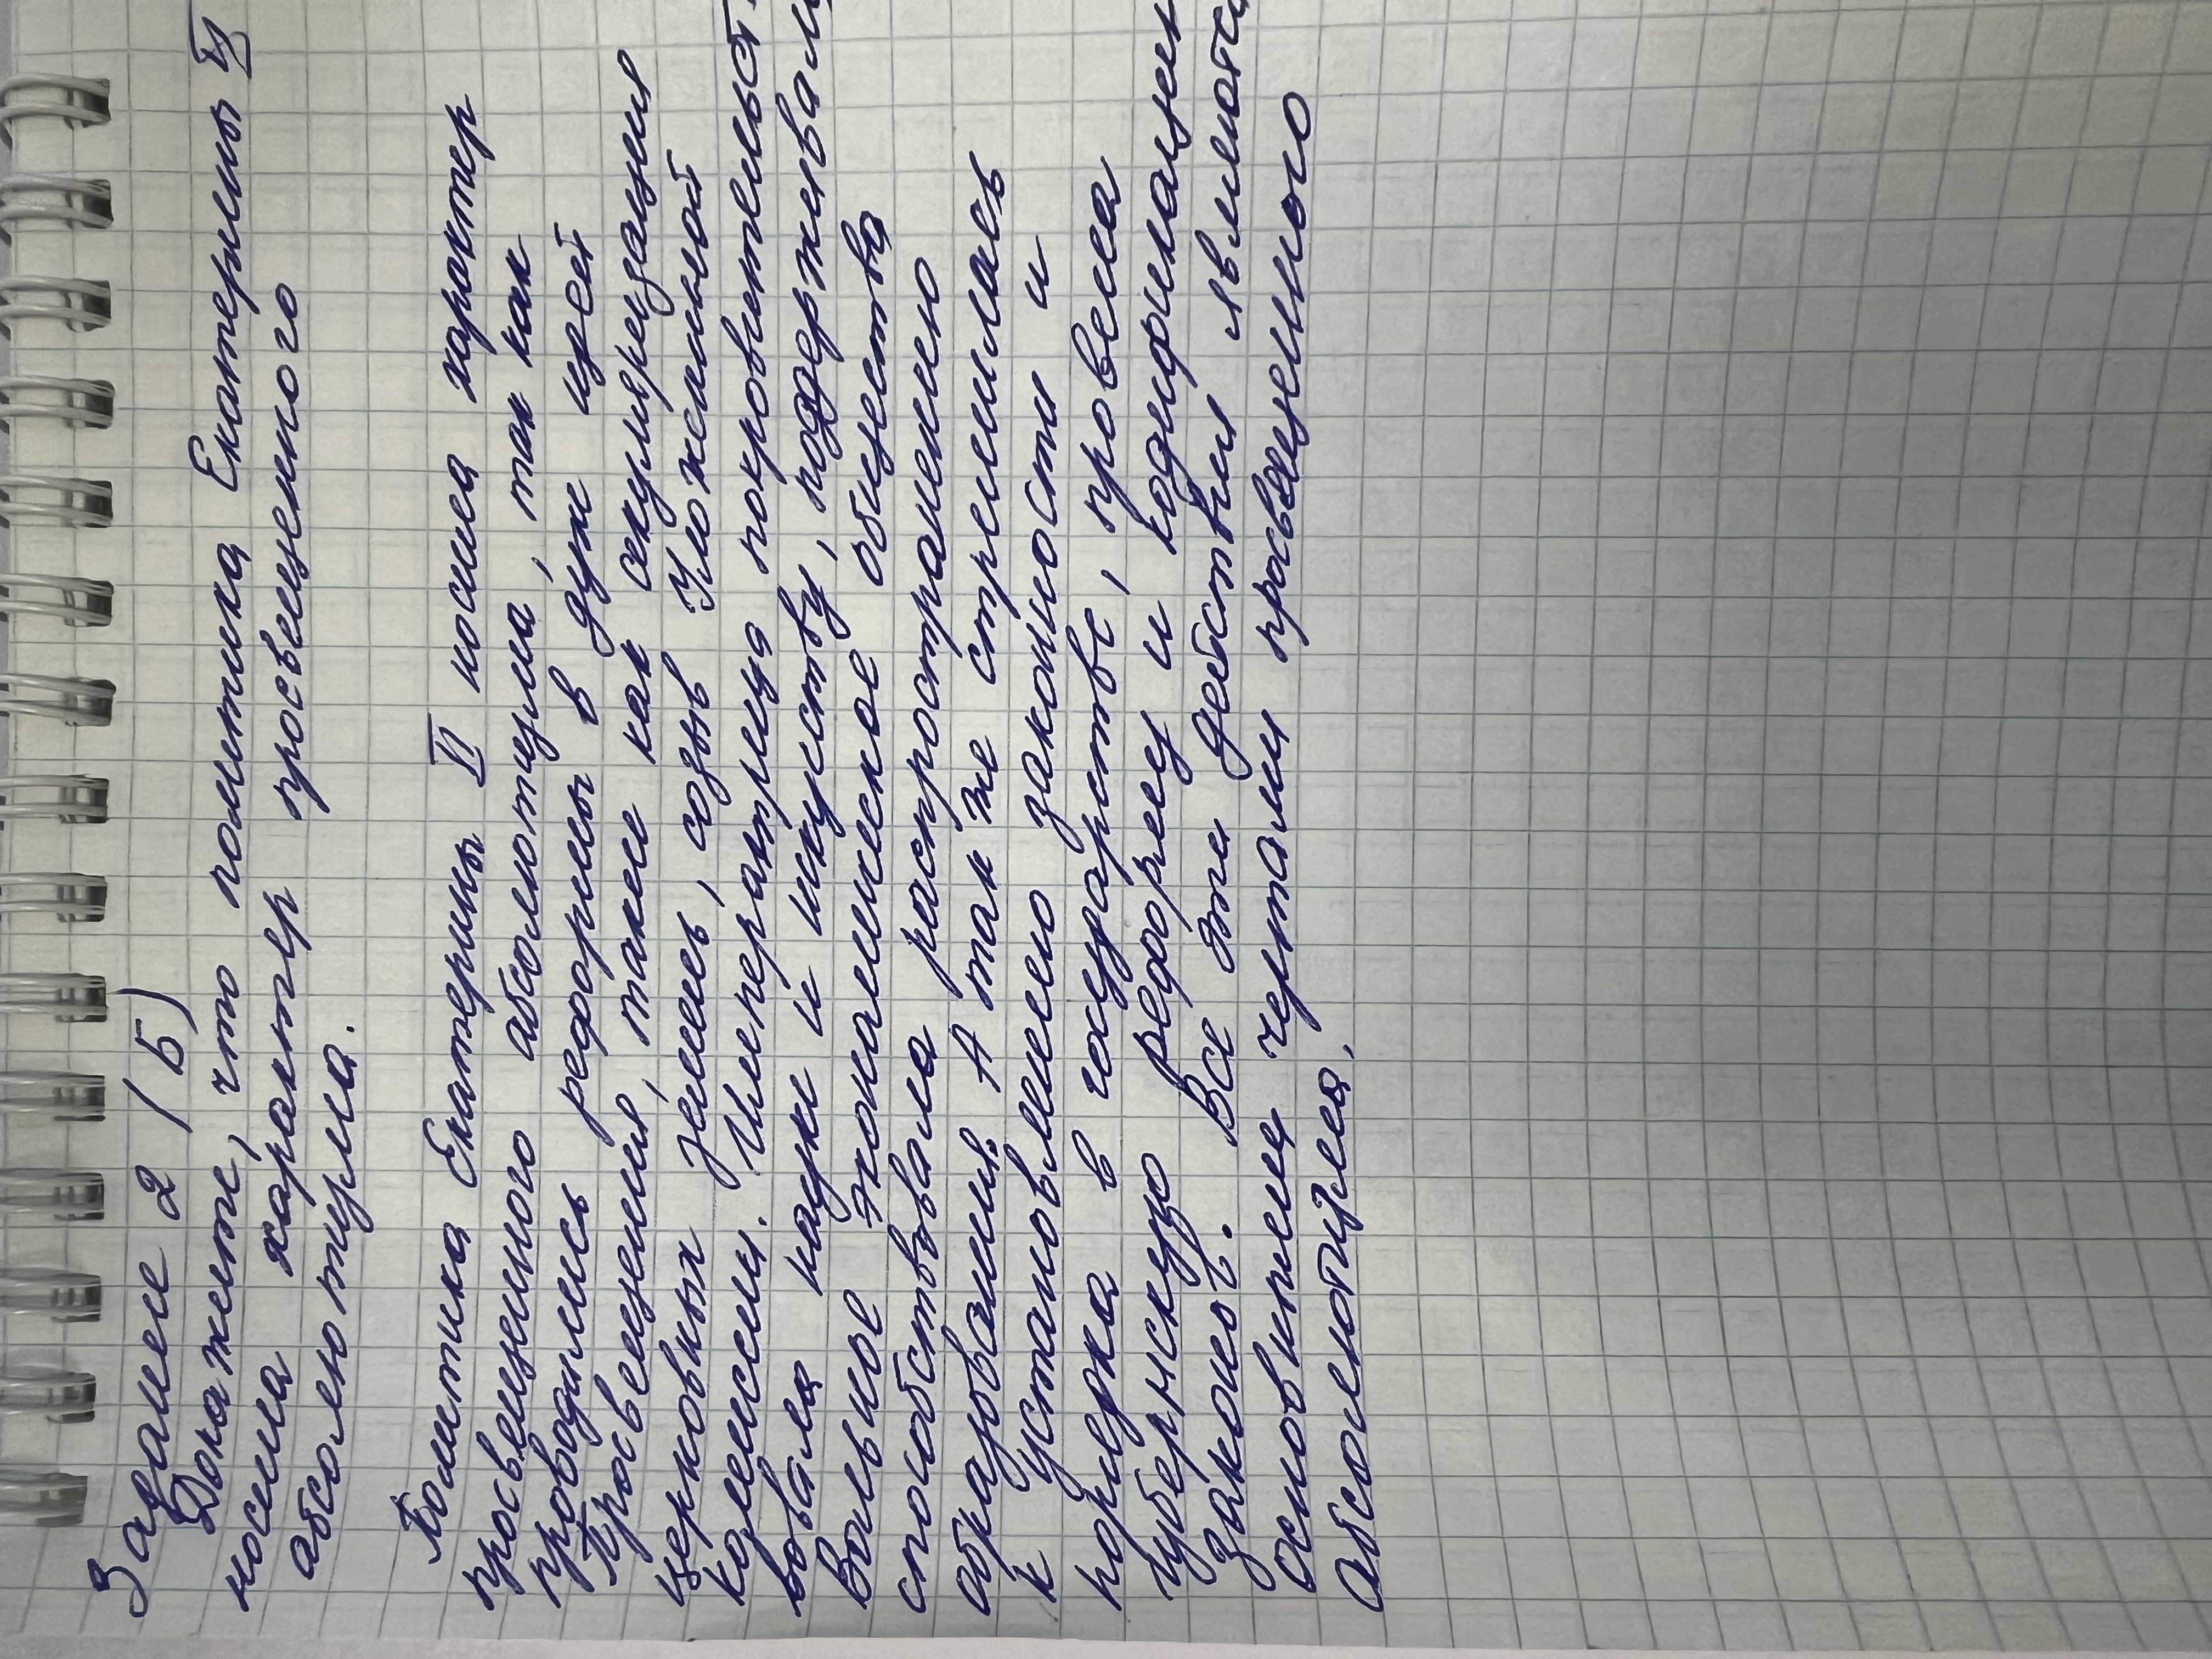 Задание 2 (Б)
Докажите, что политика Екатерины II
носила характер просвещенного
абсолютизма.
Политика Екатерины II носила характер
просвещенного абсолютизма, так как
проводились реформы в духе идей
Просвещения, такие как секуляризация
церковных земель, созыв Уложенной
комиссии. Императрица покровительст-
вовала науке и искусству, поддерживала
Вольное экономическое общество
способствовала распространению
образования. А так же стремилась
к установлению законности и
порядка в государстве, провела
губернскую реформу и кодификацию
законов. Все эти действия являются
основными чертами просвещенного
абсолютизма.